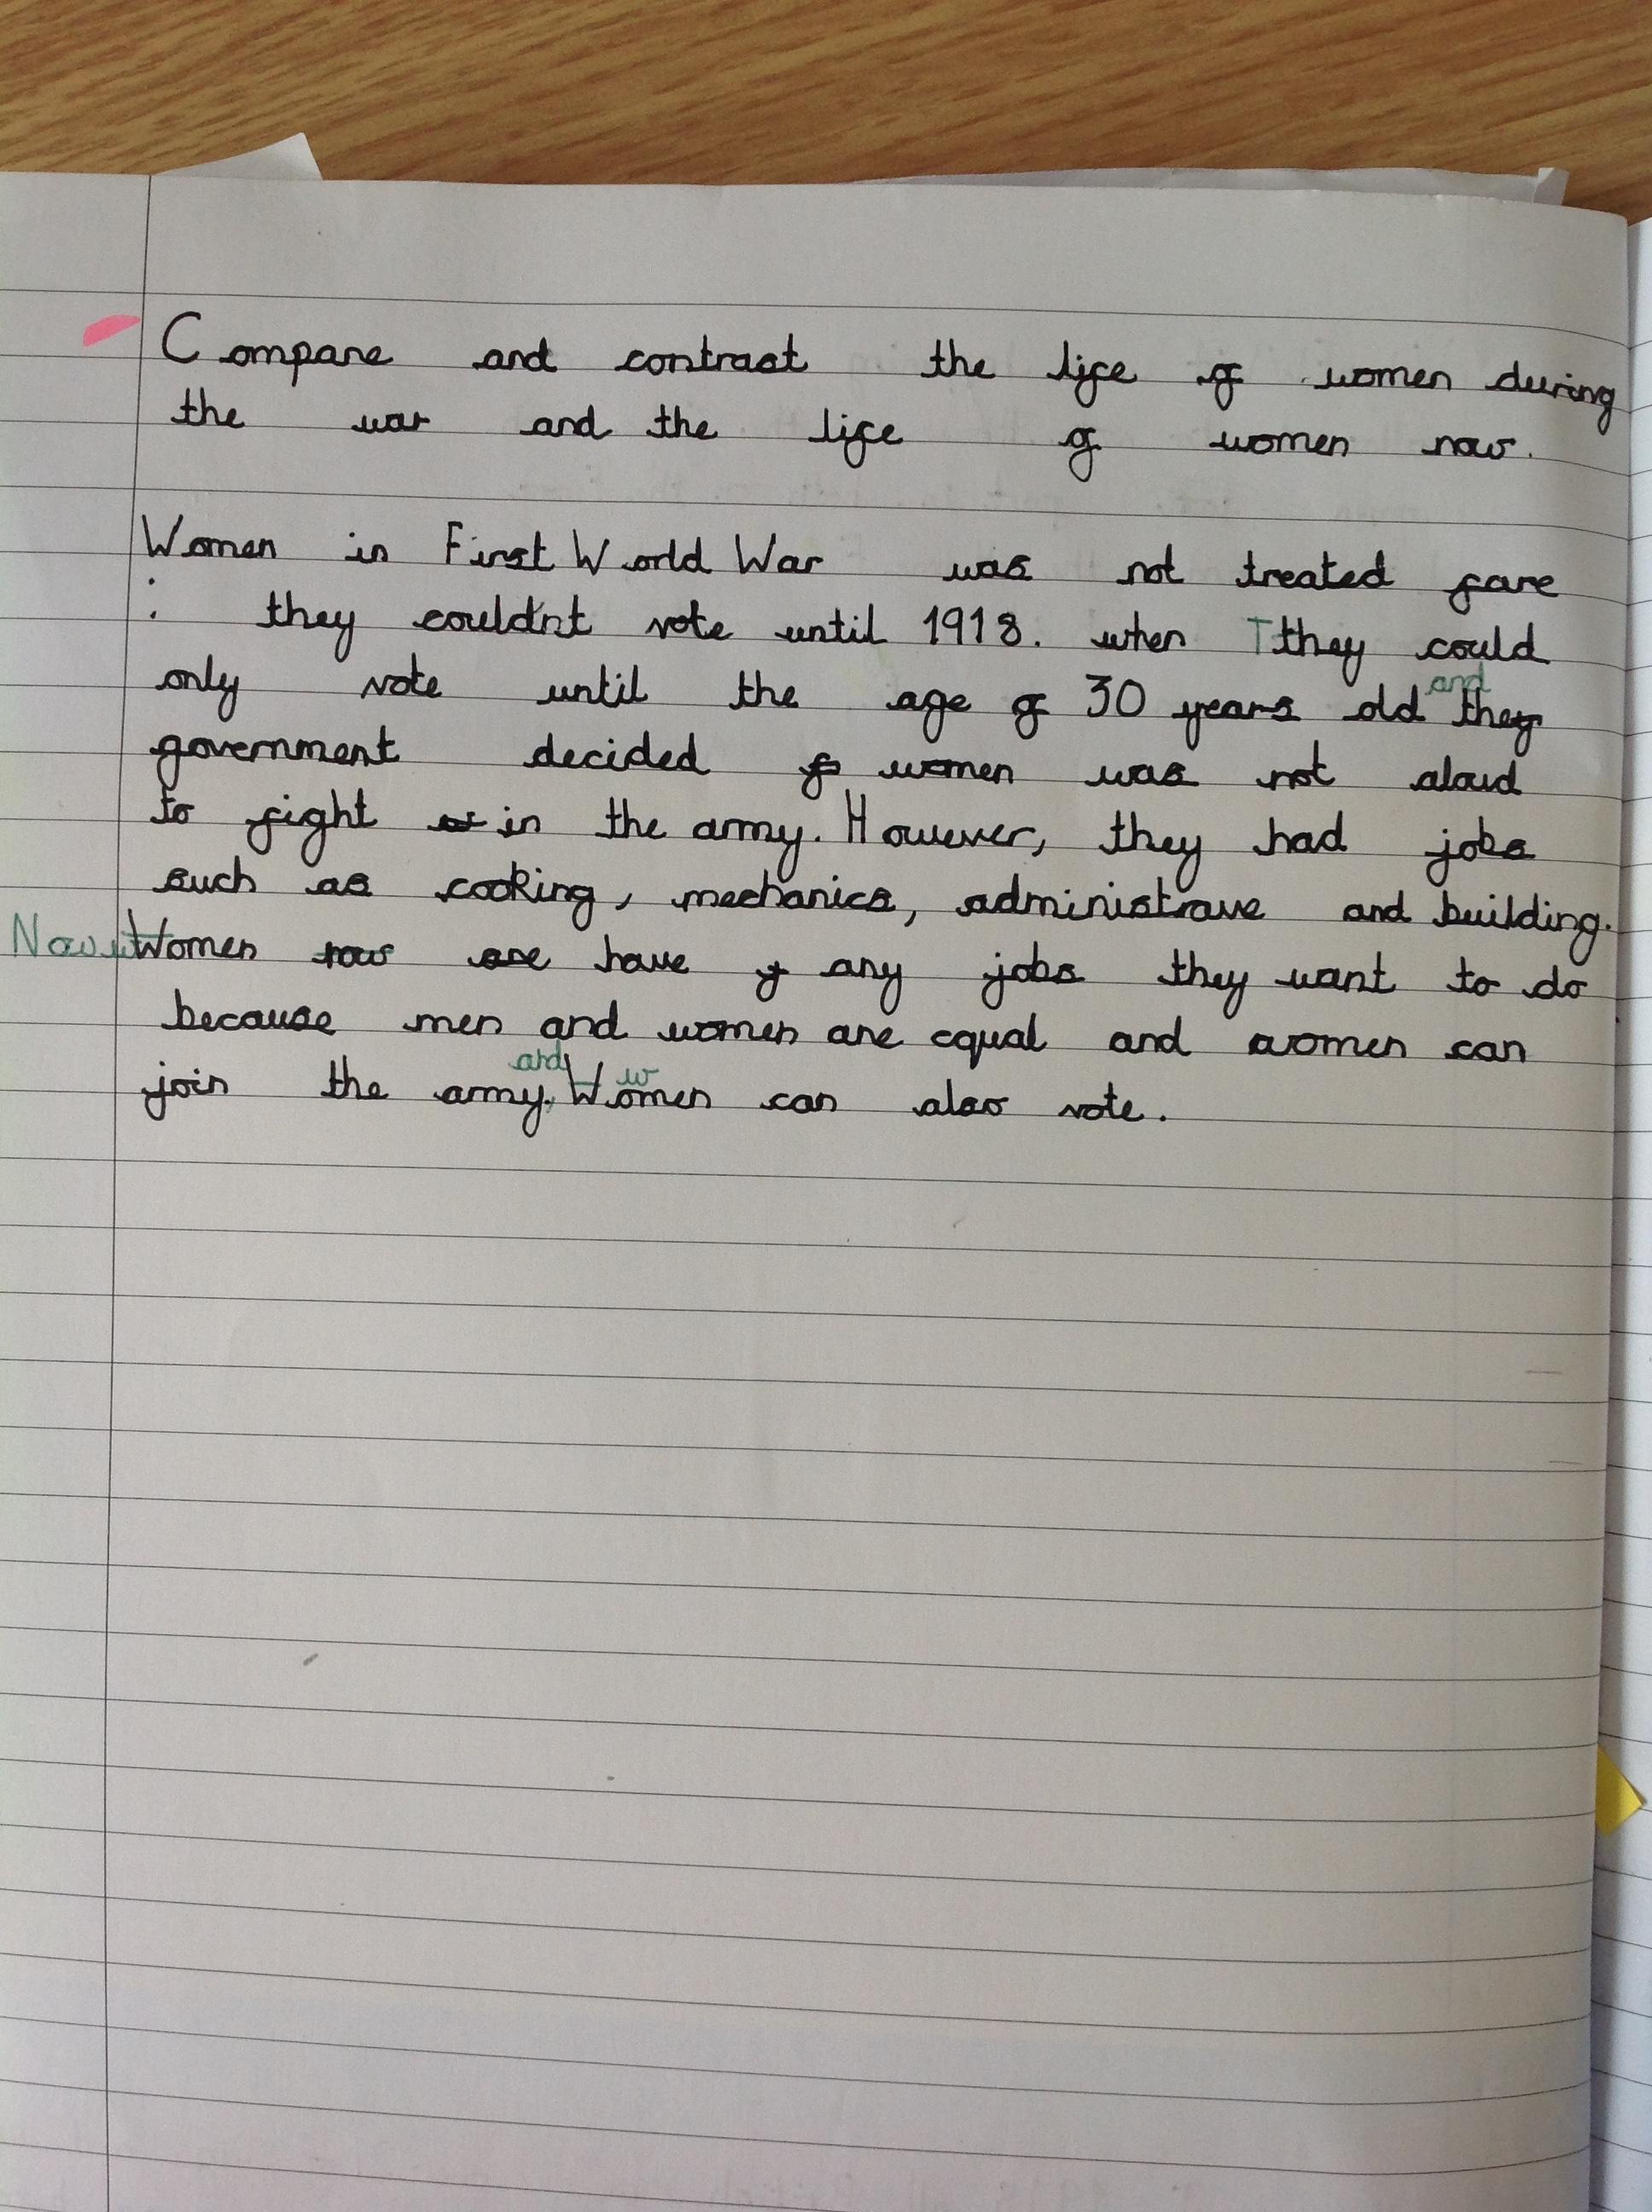 Compare and contrast the life of women during
the war and the life of women now.
Women in First World War was not treated fare
: they couldn't vote until 1918. when They could
only vote until the age of 30 years old and they
government decided women was not aloud
to fight in the army. However, they had jobs
such as cooking, mechanics, administrave and building.
Now women have any jobs they want to do
because men and women are equal and women can
join the army and women can also vote.